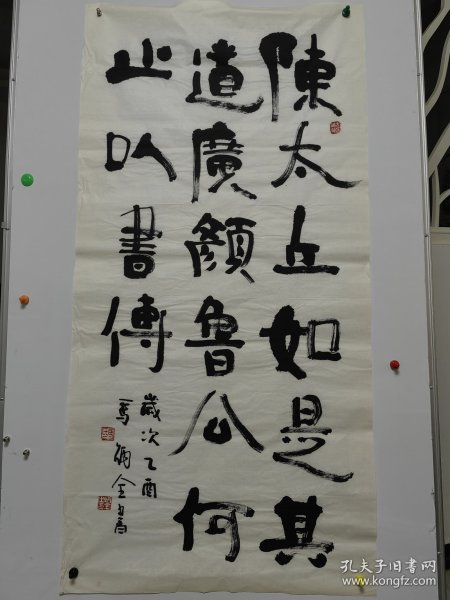 陳太丘如是其
道廣顏魯公何
止以書傳
歲次乙酉
孔夫子旧书网
www.kongfz.com